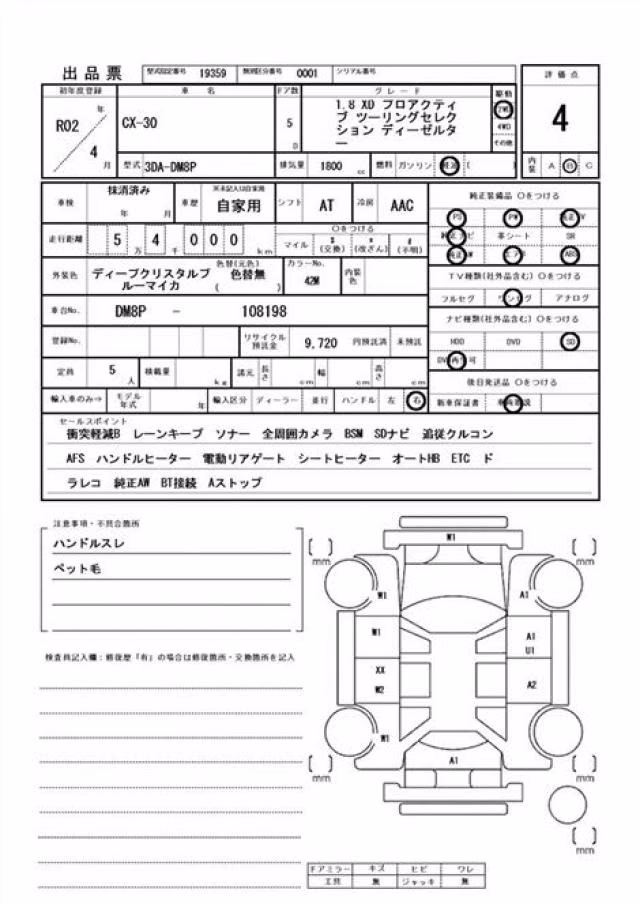 出品票 型式指定番号 19359 類別区分番号 0001 シリアル番号
評価点
初年度登録 車名 ドア数 グレード 駆動
R02 年 CX-30 5 D 1.8 XD プロアクティ 2WD 4
ブ ツーリングセレク 4WD
ション ディーゼルタ その他
ー
4 月 型式 3DA-DM8P 排気量 1800 cc 燃料 ガソリン 軽油 ( ) 内装 A B C
車検 抹消済み 年 月 車歴 ※未記入は自家用 自家用 シフト AT 冷房 AAC 純正装備品 ○をつける
PS PW 純正TV
走行距離 5 万 4 千 0 0 0 km ○をつける
マイル $ (交換) * (改ざん) # (不明)
純正ナビ 革シート SR
純正AW エアB ABS
外装色 ディープクリスタルブ
ルーマイカ 色替(元色) 色替無 ( ) カラーNo. 42M 内装色
TV種類(社外品含む) ○をつける
フルセグ ワンセグ アナログ
車台No. DM8P - 108198
ナビ種類(社外品含む) ○をつける
登録No. リサイクル預託金 9,720 円預託済 未預託 HDD DVD SD
DVD再生可
定員 5 人 積載量 kg 諸元 長さ cm 幅 cm 高さ cm
後日発送品 ○をつける
輸入車のみ⇒ モデル年式 年 輸入区分 ディーラー 並行 ハンドル 左 右 新車保証書
セールスポイント
衝突軽減B レーンキープ ソナー 全周囲カメラ BSM SDナビ 追従クルコン
AFS ハンドルヒーター 電動リアゲート シートヒーター オートHB ETC ド
ラレコ 純正AW BT接続 Aストップ
注意事項・不具合箇所
ハンドルスレ
ペット毛
検査員記入欄:修復歴「有」の場合は修復箇所・交換箇所を記入
W1
[ ] mm [ ] mm
W1 A1
W1 A1
U1
XX
W2 A2
W1
A1
[ ] mm [ ] mm
[ ] mm
ドアミラー キズ ヒビ ワレ
工具 無 ジャッキ 無